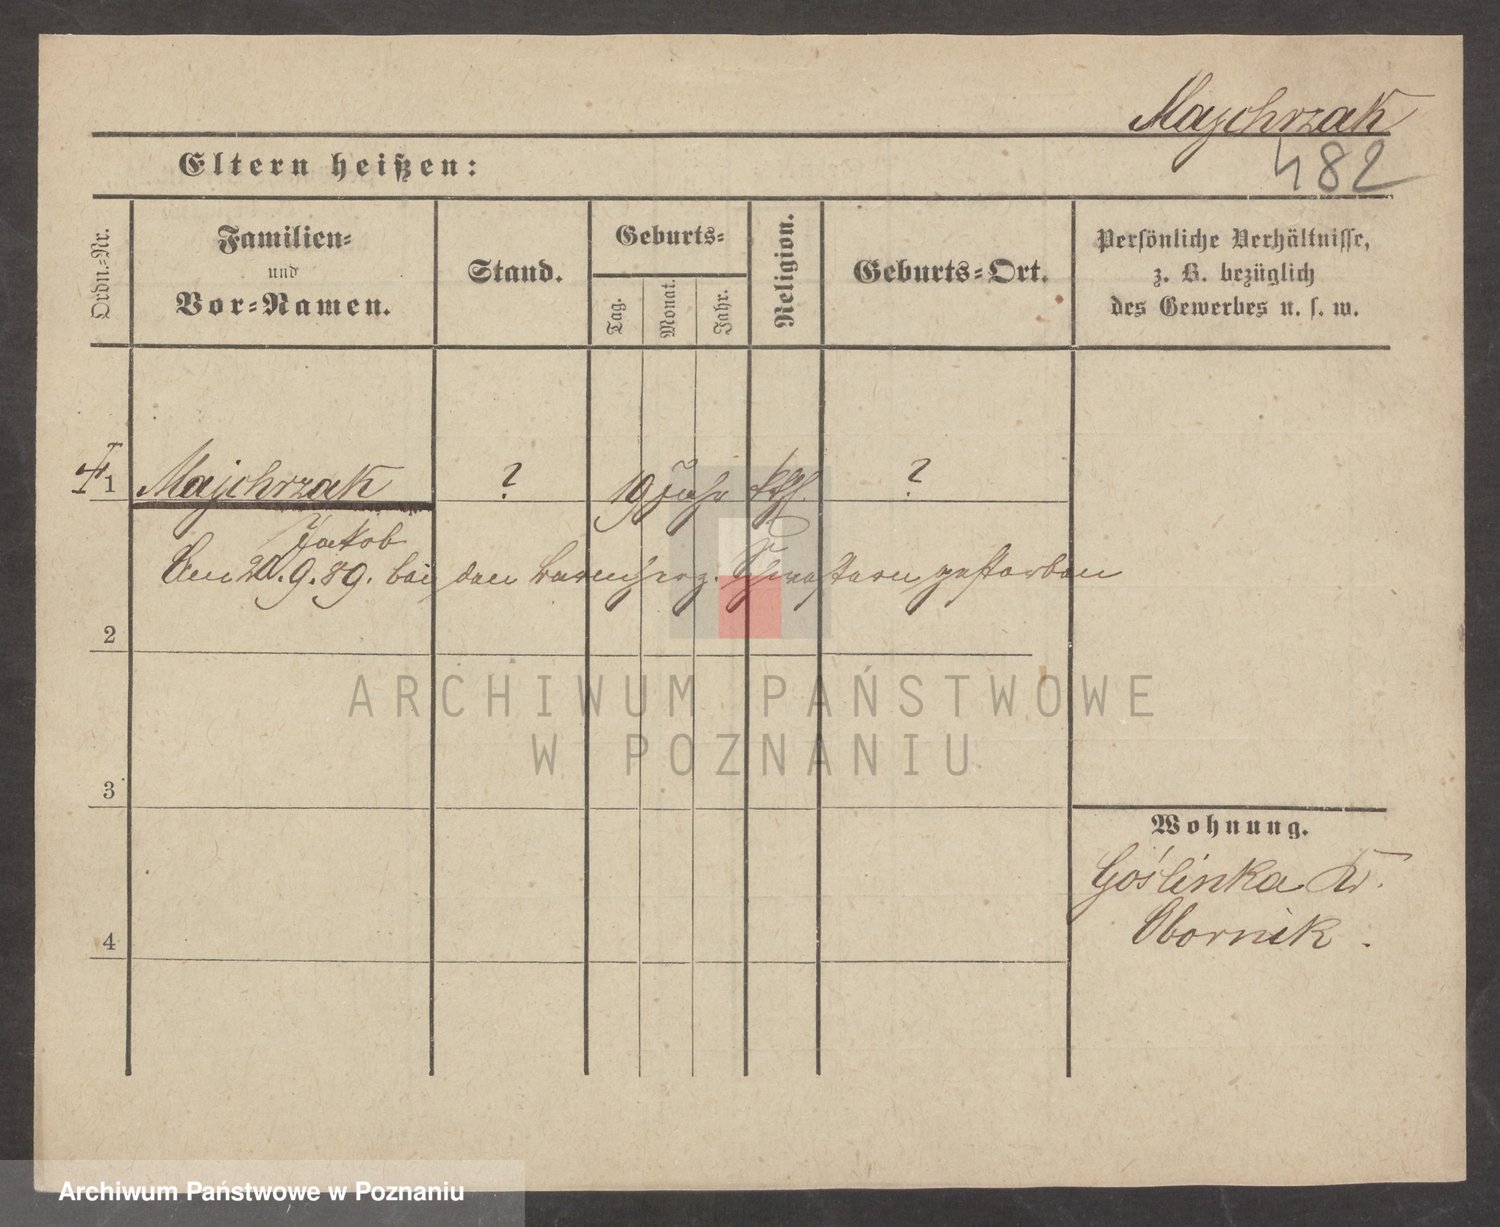 Majchrzak
482
Eltern heißen:
Ordn.-Nr.
Familien-
und
Vor-Namen.
Stand.
Geburts-
Tag.
Monat.
Jahr.
Religion.
Geburts-Ort.
Persönliche Verhältnisse,
z. B. bezüglich
des Gewerbes u. s. w.
1 Majchrzak ? 19 Jahr kth. ?
Jakob
Am 20.9.89. bei den barmherz. Schwestern gestorben
2
3
4
Wohnung.
Goślinka Kr.
Obornik.
ARCHIWUM PAŃSTWOWE
W POZNANIU
Archiwum Państwowe w Poznaniu